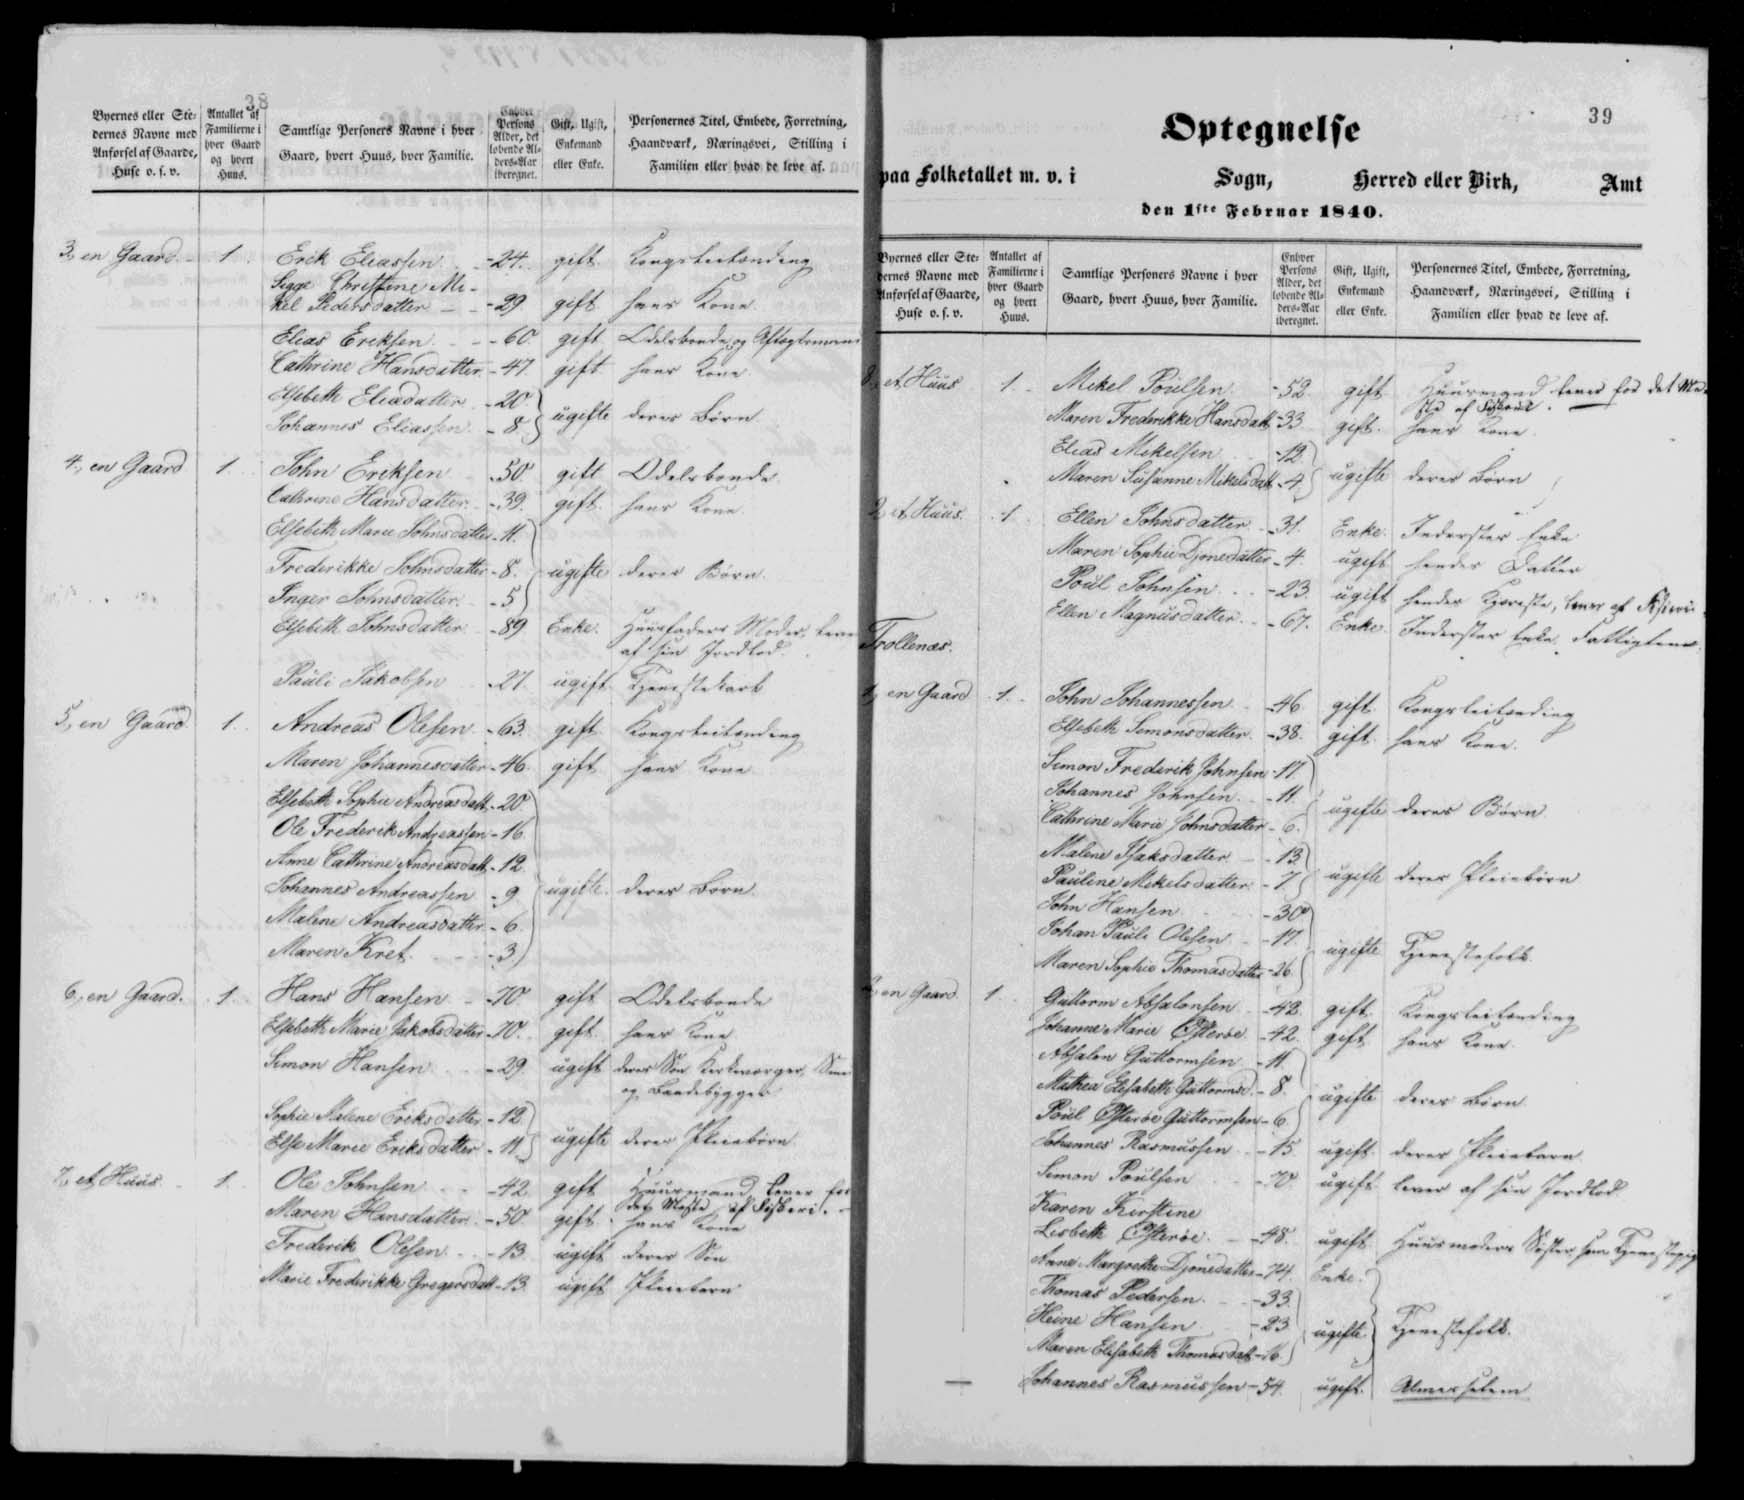 38
Byernes eller Ste-
dernes Navne med
Anførsel af Gaarde,
Huse o. s. v.
Antallet af
Familierne i
hver Gaard
og hvert
Huus.
Samtlige Personers Navne i hver
Gaard, hvert Huus, hver Familie.
Enhver
Persons
Alder, det
løbende Al-
ders-Aar
iberegnet.
Gift, Ugift,
Enkemand
eller Enke.
Personernes Titel, Embede, Forretning,
Haandværk, Næringsvei, Stilling i
Familien eller hvad de leve af.
3, en Gaard 1. Erik Eliassen - 24. gift Kongsleilænding
Sigge Christine Mi-
kel Pedersdatter - 29 gift hans Kone
Elias Eriksen - 60. gift Odelsbonde og Aftægtsmand
Cathrine Hansdatter - 47. gift hans Kone
Elsebeth Eliasdatter - 20
Johannes Eliassen - 8 ugifte deres Børn.
4, en Gaard 1. John Eriksen - 50. gift Odelsbonde
Cathrine Hansdatter - 39. gift hans Kone.
Elsebeth Marie Johnsdatter - 11.
Frederikke Johnsdatter - 8. ugifte deres Børn.
Inger Johnsdatter - 5
Elsebeth Johnsdatter - 89 Enke. Huusfaders Moder, lever
af sin Jordlod.
Pauli Jakobsen - 27. ugift Tjenestekarl
5, en Gaard 1. Andreas Olesen - 63. gift Kongsleilænding
Maren Johannesdatter - 46. gift hans Kone
Elsebeth Sophie Andreasdatt. - 20
Ole Frederik Andreassen - 16.
Anne Cathrine Andreasdatt. - 12
Johannes Andreassen - 9 ugifte deres Børn.
Malene Andreasdatter - 6.
Maren Kret. - 3
6, en Gaard. 1. Hans Hansen - 70. gift Odelsbonde
Elsebeth Marie Jakobsdatter - 70. gift hans Kone
Simon Hansen - 29. ugift deres Søn Kirkeværger,
og Baadebygger
Sophie Malene Eriksdatter - 12
Else Marie Eriksdatter - 11 ugifte deres Pleiebørn.
7, et Huus. 1. Ole Johnsen - 42. gift Huusmand, lever for
det Meste af Fiskeri.
Maren Hansdatter - 50. gift hans Kone
Frederik Olesen - 13. ugift deres Søn
Marie Frederikke Gregersdatt - 13. ugift Pleiebarn
39
Optegnelse
paa Folketallet m. v. i Sogn, Herred eller Birk, Amt
den 1ste Februar 1840.
Byernes eller Ste-
dernes Navne med
Anførsel af Gaarde,
Huse o. s. v.
Antallet af
Familierne i
hver Gaard
og hvert
Huus.
Samtlige Personers Navne i hver
Gaard, hvert Huus, hver Familie.
Enhver
Persons
Alder, det
løbende Al-
ders-Aar
iberegnet.
Gift, Ugift,
Enkemand
eller Enke.
Personernes Titel, Embede, Forretning,
Haandværk, Næringsvei, Stilling i
Familien eller hvad de leve af.
8, et Huus 1. Mikel Poulsen - 52 gift Huusmand lever for det Me-
ste af Fiskeri.
Maren Frederikke Hansdatt - 33 gift. hans Kone.
Elias Mikelsen - 12
Maren Susanne Mikelsdatt - 4. ugifte deres Børn
9, et Huus. 1. Ellen Johnsdatter - 31. Enke. Inderster Enke
Maren Sophie Djonedatter - 4. ugift hendes Datter
Poul Johnsen - 23. ugift hendes Kjæreste, lever af Fiskeri
Ellen Magnusdatter - 67. Enke. Inderster Enke, Fattiglem
Trollenæs.
1, en Gaard 1. John Johannessen - 46. gift. Kongsleilænding
Elsebeth Simonsdatter - 38. gift. hans Kone.
Simon Frederik Johnsen - 17
Johannes Johnsen - 11. ugifte deres Børn
Cathrine Marie Johnsdatter - 6.
Malene Isaksdatter - 13
Pauline Mikelsdatter - 7 ugifte deres Pleiebørn
John Hansen - 30
Johan Pauli Olesen - 17. ugifte Tjenestefolk.
Maren Sophie Thomasdatter - 26
2, en Gaard 1. Guttorm Absalonsen - 42. gift. Kongsleilænding
Johanne Marie Østerøe - 42. gift hans Kone.
Absalon Guttormsen - 11
Mathea Elisabeth Guttormsd. - 8. ugifte deres Børn
Poul Østerøe Guttormsen - 6
Johannes Rasmussen - 15. ugift. deres Pleiebarn
Simon Poulsen - 70. ugift lever af sin Jordlod
Karen Kirstine
Lisbeth Østerøe - 48. ugift Huusmoders Søster som Tjenestepige
Anne Margrethe Djonedatter - 74. Enke.
Thomas Pedersen - 33
Heine Hansen - 23 ugifte Tjenestefolk.
Maren Elisabeth Thomasdatt - 16.
Johannes Rasmussen - 54. ugift. Almisselem